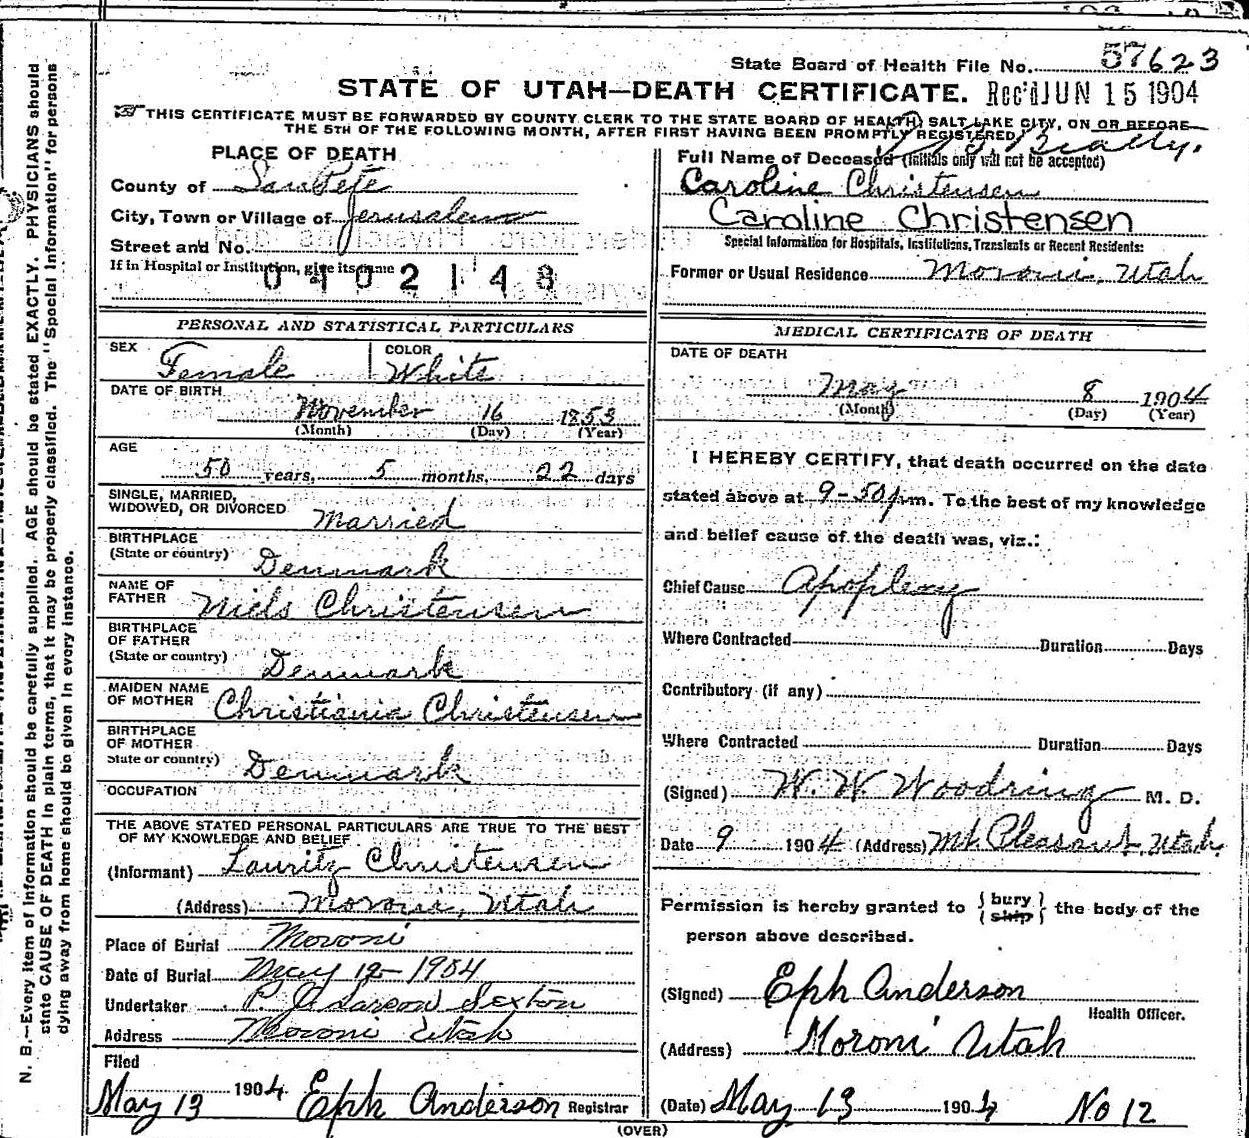 State Board of Health File No. 57623
STATE OF UTAH—DEATH CERTIFICATE. Rec'd JUN 15 1904
THIS CERTIFICATE MUST BE FORWARDED BY COUNTY CLERK TO THE STATE BOARD OF HEALTH, SALT LAKE CITY, ON OR BEFORE
THE 5TH OF THE FOLLOWING MONTH, AFTER FIRST HAVING BEEN PROMPTLY REGISTERED.
PLACE OF DEATH
County of SanPete
City, Town or Village of Jerusalem
Street and No.
If in Hospital or Institution, give its name
0402148
Full Name of Deceased (Initials only will not be accepted)
Caroline Christensen
Caroline Christensen
Special Information for Hospitals, Institutions, Transients or Recent Residents:
Former or Usual Residence Moroni, Utah
PERSONAL AND STATISTICAL PARTICULARS
SEX Female COLOR White
DATE OF BIRTH
November 16 1853
(Month) (Day) (Year)
AGE
50 years, 5 months, 22 days
SINGLE, MARRIED,
WIDOWED, OR DIVORCED Married
BIRTHPLACE
(State or country) Denmark
NAME OF
FATHER Niels Christensen
BIRTHPLACE
OF FATHER
(State or country) Denmark
MAIDEN NAME
OF MOTHER Christiania Christensen
BIRTHPLACE
OF MOTHER
State or country) Denmark
OCCUPATION
THE ABOVE STATED PERSONAL PARTICULARS ARE TRUE TO THE BEST
OF MY KNOWLEDGE AND BELIEF
(Informant) Lauritz Christensen
(Address) Moroni, Utah
Place of Burial Moroni
Date of Burial May 12 - 1904
Undertaker P. Larson Sexton
Address Moroni Utah
Filed
May 13 1904 Eph Anderson Registrar
MEDICAL CERTIFICATE OF DEATH
DATE OF DEATH
May 8 1904
(Month) (Day) (Year)
I HEREBY CERTIFY, that death occurred on the date
stated above at 9-50 p.m. To the best of my knowledge
and belief cause of the death was, viz.:
Chief Cause Apoplexy
Where Contracted Duration Days
Contributory (if any)
Where Contracted Duration Days
(Signed) W. W. Woodring M. D.
Date 9 1904 (Address) Mt. Pleasant, Utah.
Permission is hereby granted to { bury / ship } the body of the
person above described.
(Signed) Eph Anderson
Health Officer.
(Address) Moroni Utah
(Date) May 13 1904 No 12
(OVER)
N. B.—Every item of information should be carefully supplied. AGE should be stated EXACTLY. PHYSICIANS should
state CAUSE OF DEATH in plain terms, that it may be properly classified. The "Special Information" for persons
dying away from home should be given in every instance.